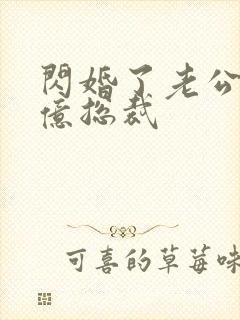 閃婚了老公
億总裁
可喜的草莓味